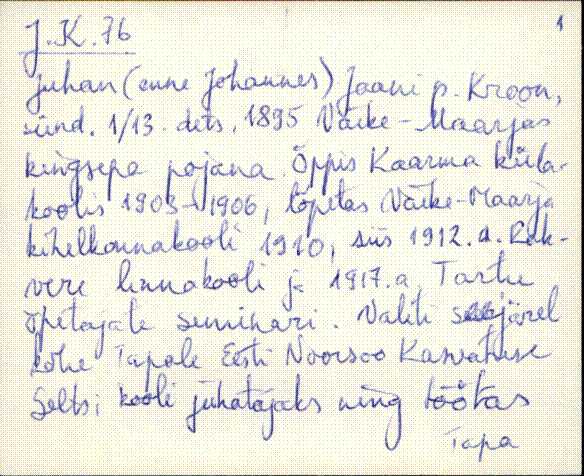 1
J.K. 76
Juhan (enne Johannes) Jaani p. Kröön,
sünd. 1/13. dets. 1895 Väike-Maarjas
kingsepa pojana. Õppis Kaarma küla-
koolis 1903-1906, lõpetas Väike-Maarja
kihelkonnakooli 1910, siis 1912.a. Rak-
vere linnakooli ja 1917.a. Tartu
õpetajate seminari. Valiti seejärel
kohe Tapale Eesti Noorsoo Kasvatuse
Seltsi kooli juhatajaks ning töötas
Tapa